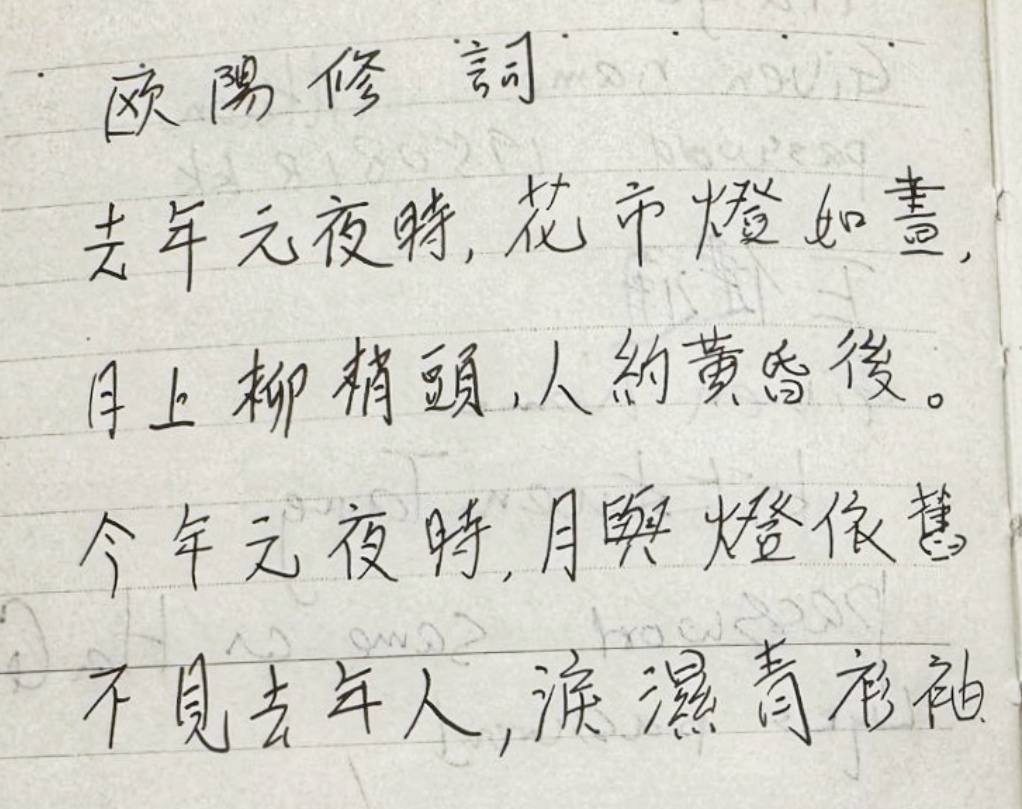 欧陽修 詞
去年元夜時,花市燈如晝,
月上柳梢頭,人約黃昏後。
今年元夜時,月與燈依舊
不見去年人,淚濕青衫袖